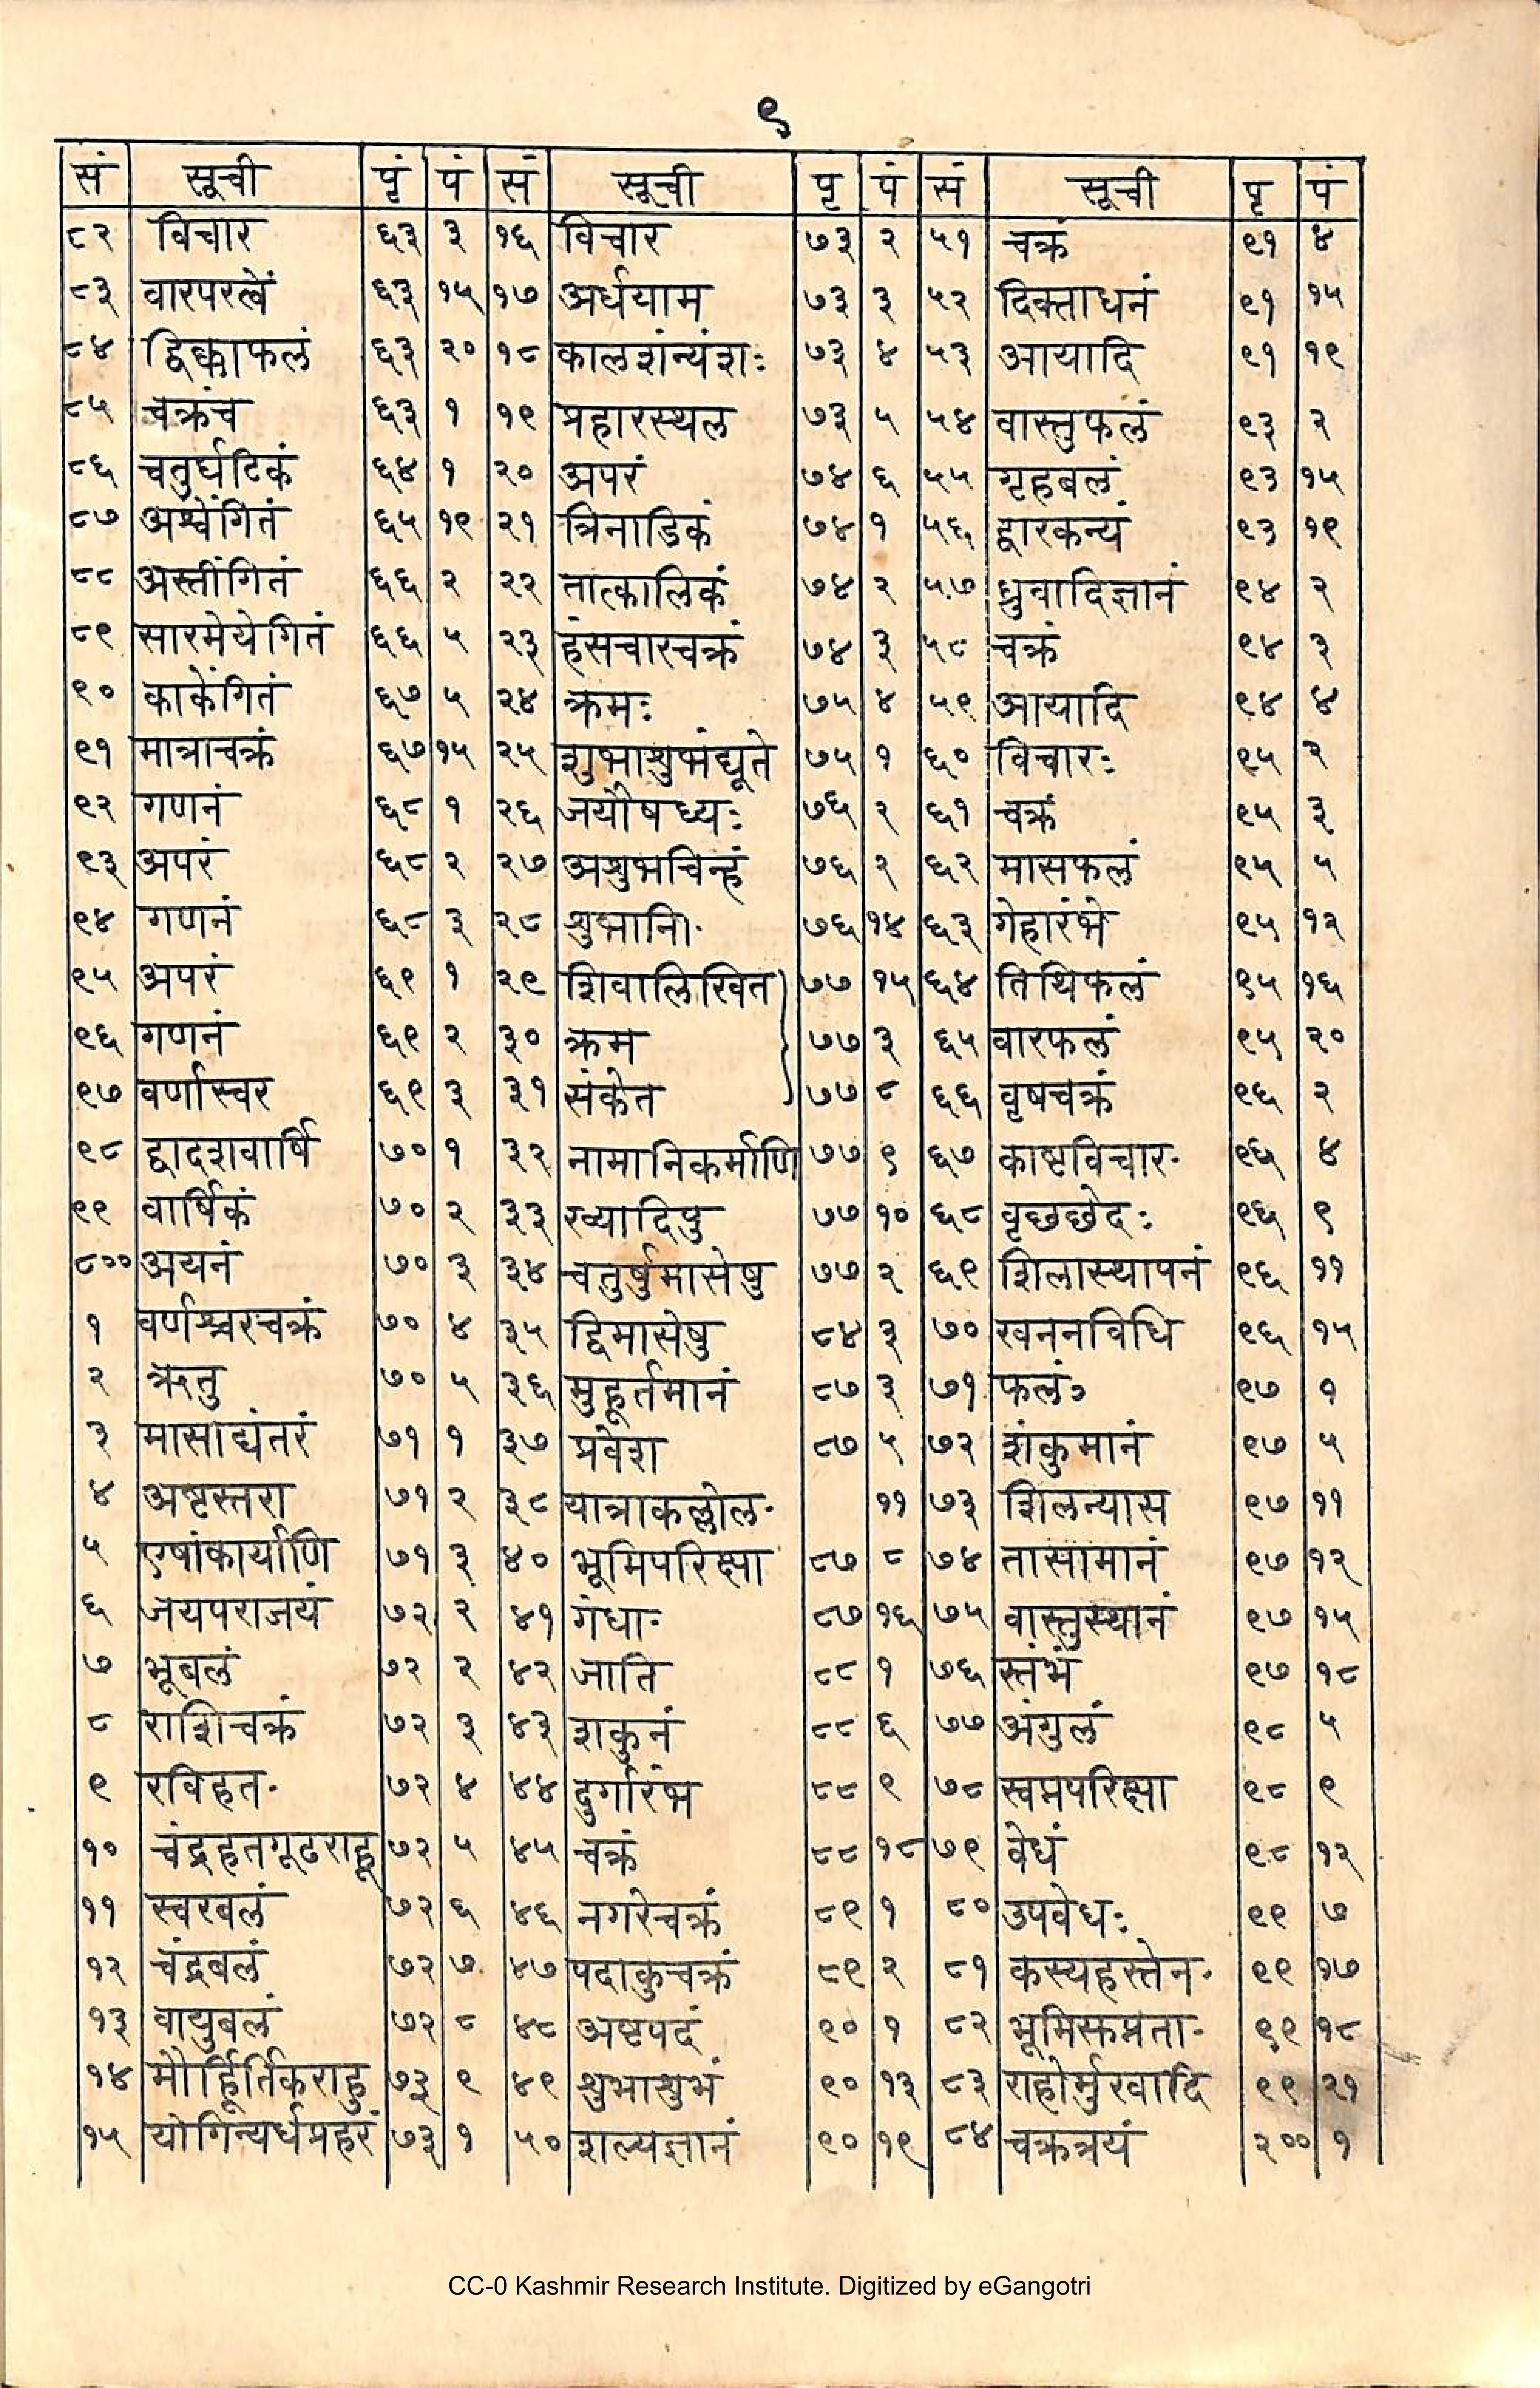 ९
सं सूची पृं पं सं सूची पृ पं सं सूची पृ पं
८२ विचार ६३ ३ १६ विचार ७३ २ ५१ चक्रं ९१ ४
८३ वारपरत्वें ६३ १५ १७ अर्धयाम ७३ ३ ५२ दिक्ताधनं ९१ १५
८४ द्विक्काफलं ६३ २० १८ कालशंन्यंशः ७३ ४ ५३ आयादि ९१ १९
८५ चक्रंच ६३ १ १९ प्रहारस्थल ७३ ५ ५४ वास्तुफलं ९३ २
८६ चतुर्घटिकं ६४ १ २० अपरं ७४ ६ ५५ गृहबलं ९३ १५
८७ अश्वेंगितं ६५ १९ २१ त्रिनाडिकं ७४ १ ५६ द्वारकन्यं ९३ १९
८८ अस्तींगितं ६६ २ २२ तात्कालिकं ७४ २ ५७ ध्रुवादिज्ञानं ९४ २
८९ सारमेयेगितं ६६ ५ २३ हंसचारचक्रं ७४ ३ ५८ चक्रं ९४ ३
९० काकेंगितं ६७ ५ २४ क्रमः ७५ ४ ५९ आयादि ९४ ४
९१ मात्राचक्रं ६७ १५ २५ शुभाशुभंद्यूते ७५ १ ६० विचारः ९५ २
९२ गणनं ६८ १ २६ जयौषध्यः ७६ २ ६१ चक्रं ९५ ३
९३ अपरं ६८ २ २७ अशुभचिन्हं ७६ २ ६२ मासफलं ९५ ५
९४ गणनं ६८ ३ २८ शुभानि· ७६ १४ ६३ गेहारंभे ९५ १२
९५ अपरं ६९ १ २९ शिवालिखित ७७ १५ ६४ तिथिफलं ९५ १६
९६ गणनं ६९ २ ३० क्रम ७७ ३ ६५ वारफलं ९५ २०
९७ वर्णास्वर ६९ ३ ३१ संकेत ७७ ८ ६६ वृषचक्रं ९६ २
९८ द्वादशवार्षि ७० १ ३२ नामानिकर्माणि ७७ ९ ६७ काष्टविचार· ९६ ४
९९ वार्षिकं ७० २ ३३ रव्यादिषु ७७ १० ६८ वृछछेदः ९६ ९
८०० अयनं ७० ३ ३४ चतुर्षुमासेषु ७७ २ ६९ शिलास्थापनं ९६ ११
१ वर्णश्वरचक्रं ७० ४ ३५ द्विमासेषु ८४ ३ ७० खननविधि ९६ १५
२ ऋतु ७० ५ ३६ मुहूर्तमानं ८७ ३ ७१ फलं ९७ १
३ मासाद्यंतरं ७१ १ ३७ प्रवेश ८७ ५ ७२ शंकुमानं ९७ ५
४ अष्टस्तरा ७१ २ ३८ यात्राकल्लोल· ११ ७३ शिलन्यास ९७ ११
५ एषांकार्याणि ७१ ३ ४० भूमिपरिक्षा ८७ ८ ७४ तासामानं ९७ १२
६ जयपराजयं ७२ २ ४१ गंधा· ८७ १६ ७५ वास्तुस्थानं ९७ १५
७ भूबलं ७२ २ ४२ जाति ८८ १ ७६ स्तंभं ९७ १८
८ राशिचक्रं ७२ ३ ४३ शकुनं ८८ ६ ७७ अंगुलं ९८ ५
९ रविहत· ७२ ४ ४४ दुर्गारंभ ८८ ९ ७८ स्वप्नपरिक्षा ९८ ९
१० चंद्रहतगूढराहू ७२ ५ ४५ चक्रं ८८ १८ ७९ वेधं ९८ १२
११ स्वरबलं ७२ ६ ४६ नगरेचक्रं ८९ १ ८० उपवेधः ९९ ७
१२ चंद्रबलं ७२ ७ ४७ पदाकुचक्रं ८९ २ ८१ कस्यहस्तेन· ९९ १७
१३ वायुबलं ७२ ८ ४८ अष्टपदं ९० १ ८२ ९९ १८
१४ मौर्हूर्तिकराहु ७३ ९ ४९ शुभाशुभं ९० १३ ८३ राहोर्मुखादि ९९ २१
१५ योगिन्यर्धप्रहरं ७३ १ ५० शल्यज्ञानं ९० १९ ८४ चक्रत्रयं २०० १
CC-0 Kashmir Research Institute. Digitized by eGangotri